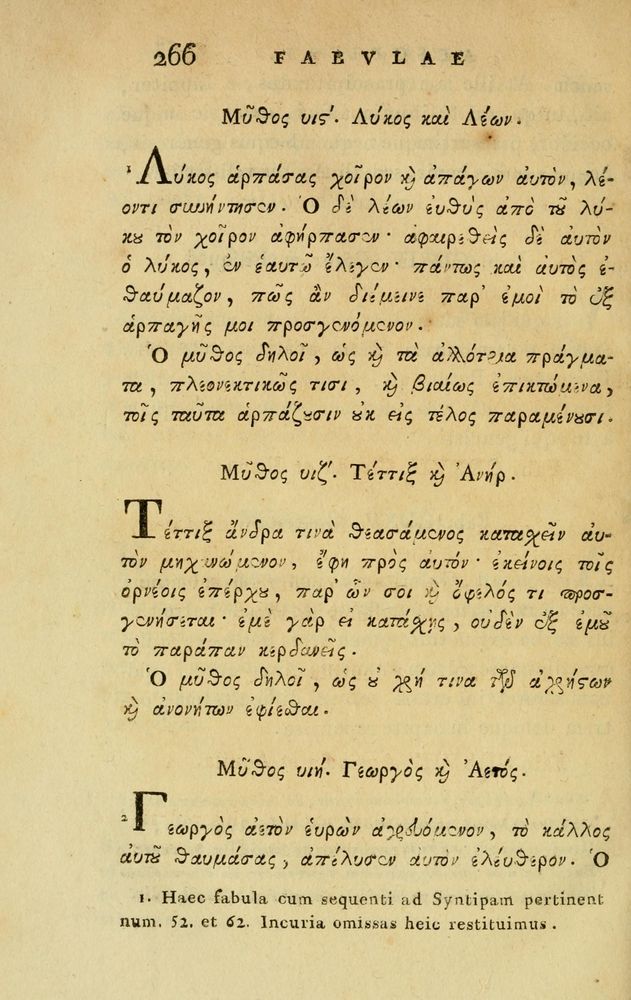 266 FAEVLAE
Μῦθος υις'. Λύκος καὶ Λέων.
¹Λύκος ἁρπάσας χοῖρον κ̀ ἀπάγων ἀυτὸν, λέ-
οντι συνήντησεν. Ὁ δὲ λέων ἐυθὺς ἀπὸ τοῦ λύ-
κου τὸν χοῖρον ἀφήρπασεν· ἀφαιρεθεὶς δὲ ἀυτὸν
ὁ λύκος, ἐν ἑαυτῷ ἔλεγεν· πάντως καὶ ἀυτὸς ἐ-
θαύμαζον, πῶς ἂν διέμεινε παρ' ἐμοὶ τὸ ἐξ
ἁρπαγῆς μοι προσγενόμενον.
Ὁ μῦθος δηλοῖ, ὡς κ̀ τὰ ἀλλότρια πράγμα-
τα, πλεονεκτικῶς τισι, κ̀ βιαίως ἐπικτώμενα,
τοῖς ταῦτα ἁρπάζουσιν οὐκ εἰς τέλος παραμένουσι.
Μῦθος υιζ'. Τέττιξ κ̀ Ἀνήρ.
Τέττιξ ἄνδρα τινὰ θεασάμενος κατασχεῖν ἀυ-
τὸν μηχανώμενον, ἔφη πρὸς ἀυτόν· ἐκείνοις τοῖς
ὀρνέοις ἐπέρχου, παρ' ὧν σοι κ̀ ὄφελός τι προσ-
γενήσεται· ἐμὲ γὰρ εἰ κατάσχῃς, ουδὲν ἐξ ἐμοῦ
τὸ παράπαν κερδανεῖς.
Ὁ μῦθος δηλοῖ, ὡς οὐ χρή τινα τῶν ἀχρήστων
κ̀ ἀνονήτων ἐφίεσθαι.
Μῦθος υιή. Γεωργὸς κ̀ Ἀετός.
²Γεωργὸς ἀετὸν ἑυρὼν ἀγρευόμενον, τὸ κάλλος
ἀυτοῦ θαυμάσας, ἀπέλυσεν ἀυτὸν ἐλέυθερον. Ὁ
1. Haec fabula cum sequenti ad Syntipam pertinent
num. 52. et 62. Incuria omissas heic restituimus.